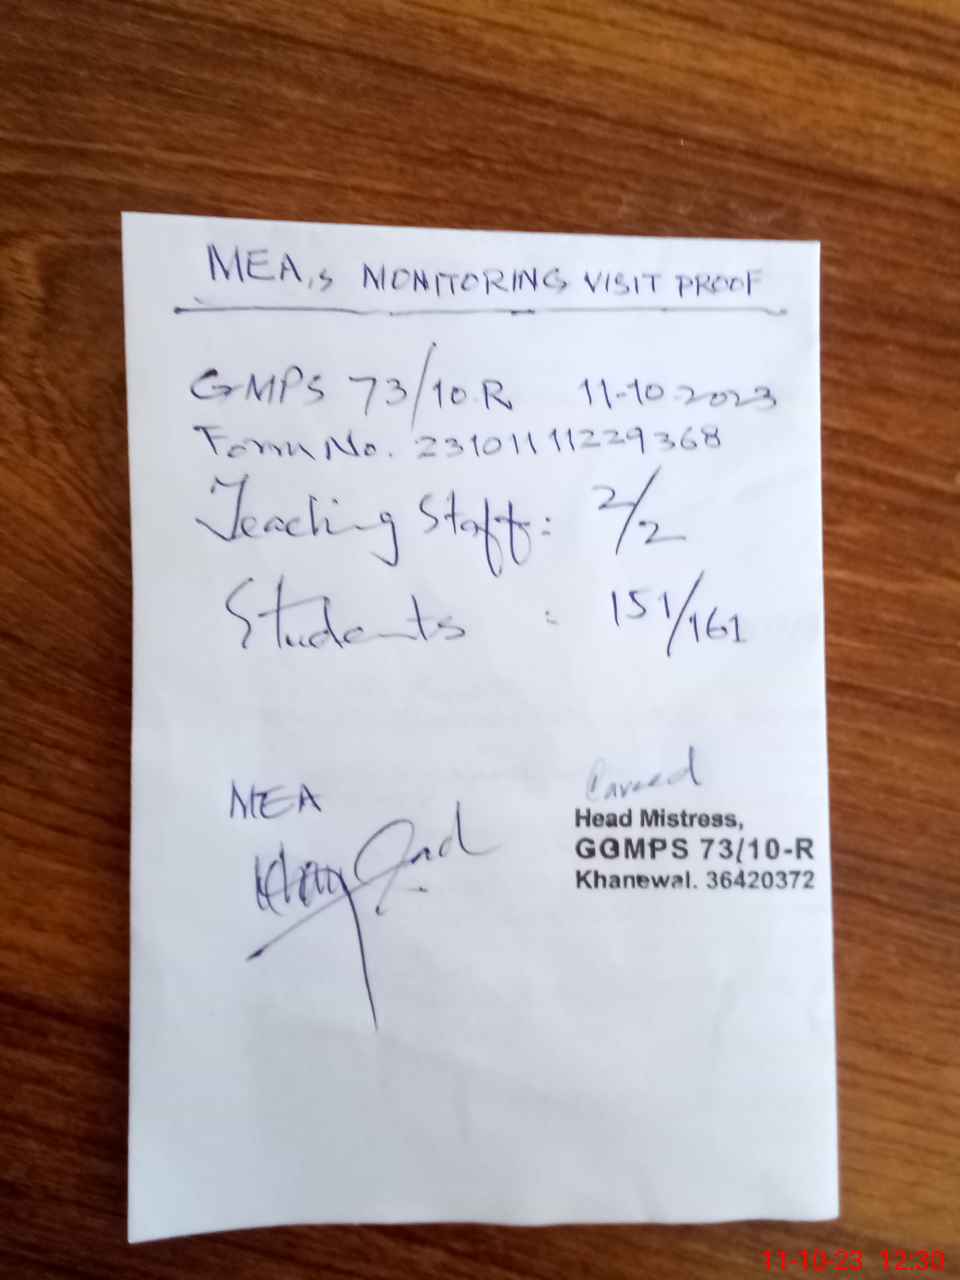 MEA,s MONITORING VISIT PROOF
GMPS 73/10.R 11-10-2023
Form No. 23101111229368
Teaching Staff: 2/2
Students : 151/161
MEA
Head Mistress,
GGMPS 73/10-R
Khanewal. 36420372
11-10-23 12:30